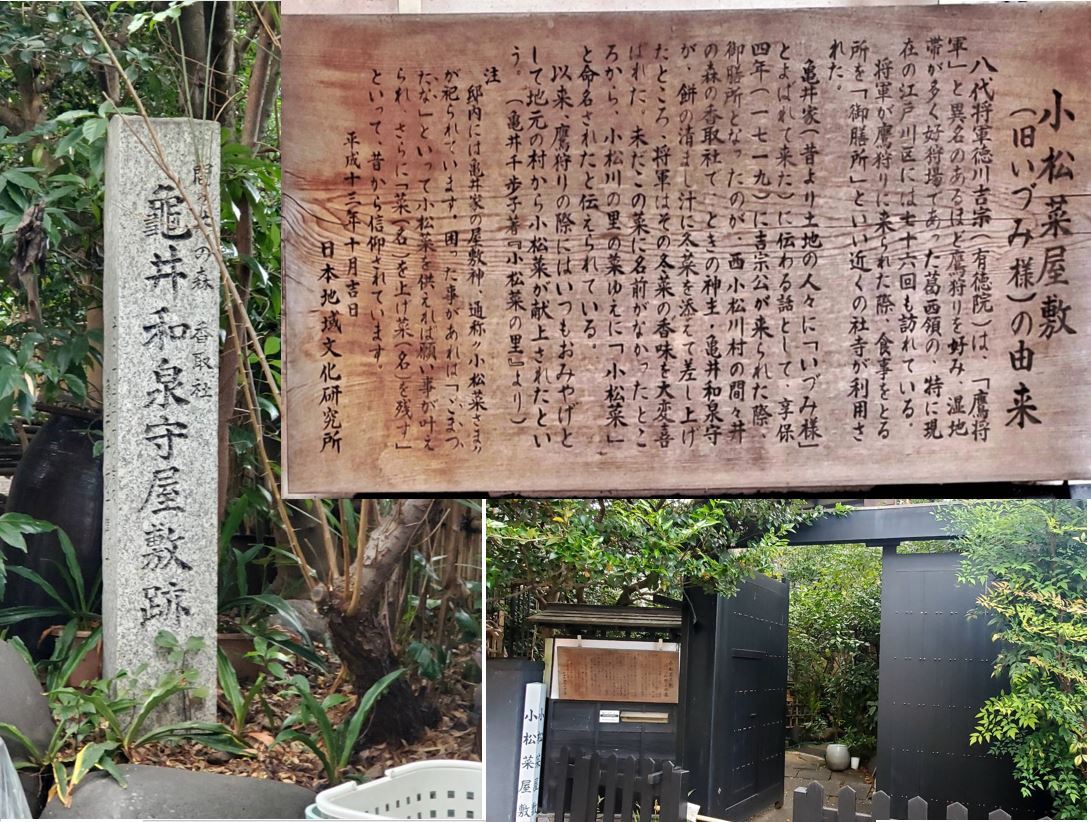 間々井の森 香取社
龜井和泉守屋敷跡
小松菜屋敷
(旧いづみ様)の由来
八代将軍徳川吉宗(有徳院)は、「鷹将
軍」と異名のあるほど鷹狩りを好み、湿地
帯が多く好狩場であった葛西領の、特に現
在の江戸川区には七十六回も訪れている。
将軍が鷹狩りに来られた際、食事をとる
所を「御膳所」といい近くの社寺が利用さ
れた。
亀井家(昔より土地の人々に「いづみ様」
とよばれて来た)に伝わる話として、享保
四年(一七一九)に吉宗公が来られた際、
御膳所となったのが、西小松川村の間々井
の森の香取社で、ときの神主・亀井和泉守
が、餅の清まし汁に冬菜を添えて差し上げ
たところ、将軍はその冬菜の香味を大変喜
ばれた。未だこの菜に名前がなかったとこ
ろから、小松川の里の菜ゆえに「小松菜」
と命名されたと伝えられている。
以来、鷹狩りの際にはいつもおみやげと
して地元の村から小松菜が献上されたとい
う。(亀井千歩子著『小松菜の里』より)
注
邸内には亀井家の屋敷神、通称〃小松菜さま〃
が祀られています。困った事があれば「、こまつ
たな」といって小松菜を供えれば願い事が叶え
られ、さらに「菜(名)を上げ菜(名)を残す」
といって、昔から信仰されています。
平成十三年十月吉日
日本地域文化研究所
小松菜屋敷